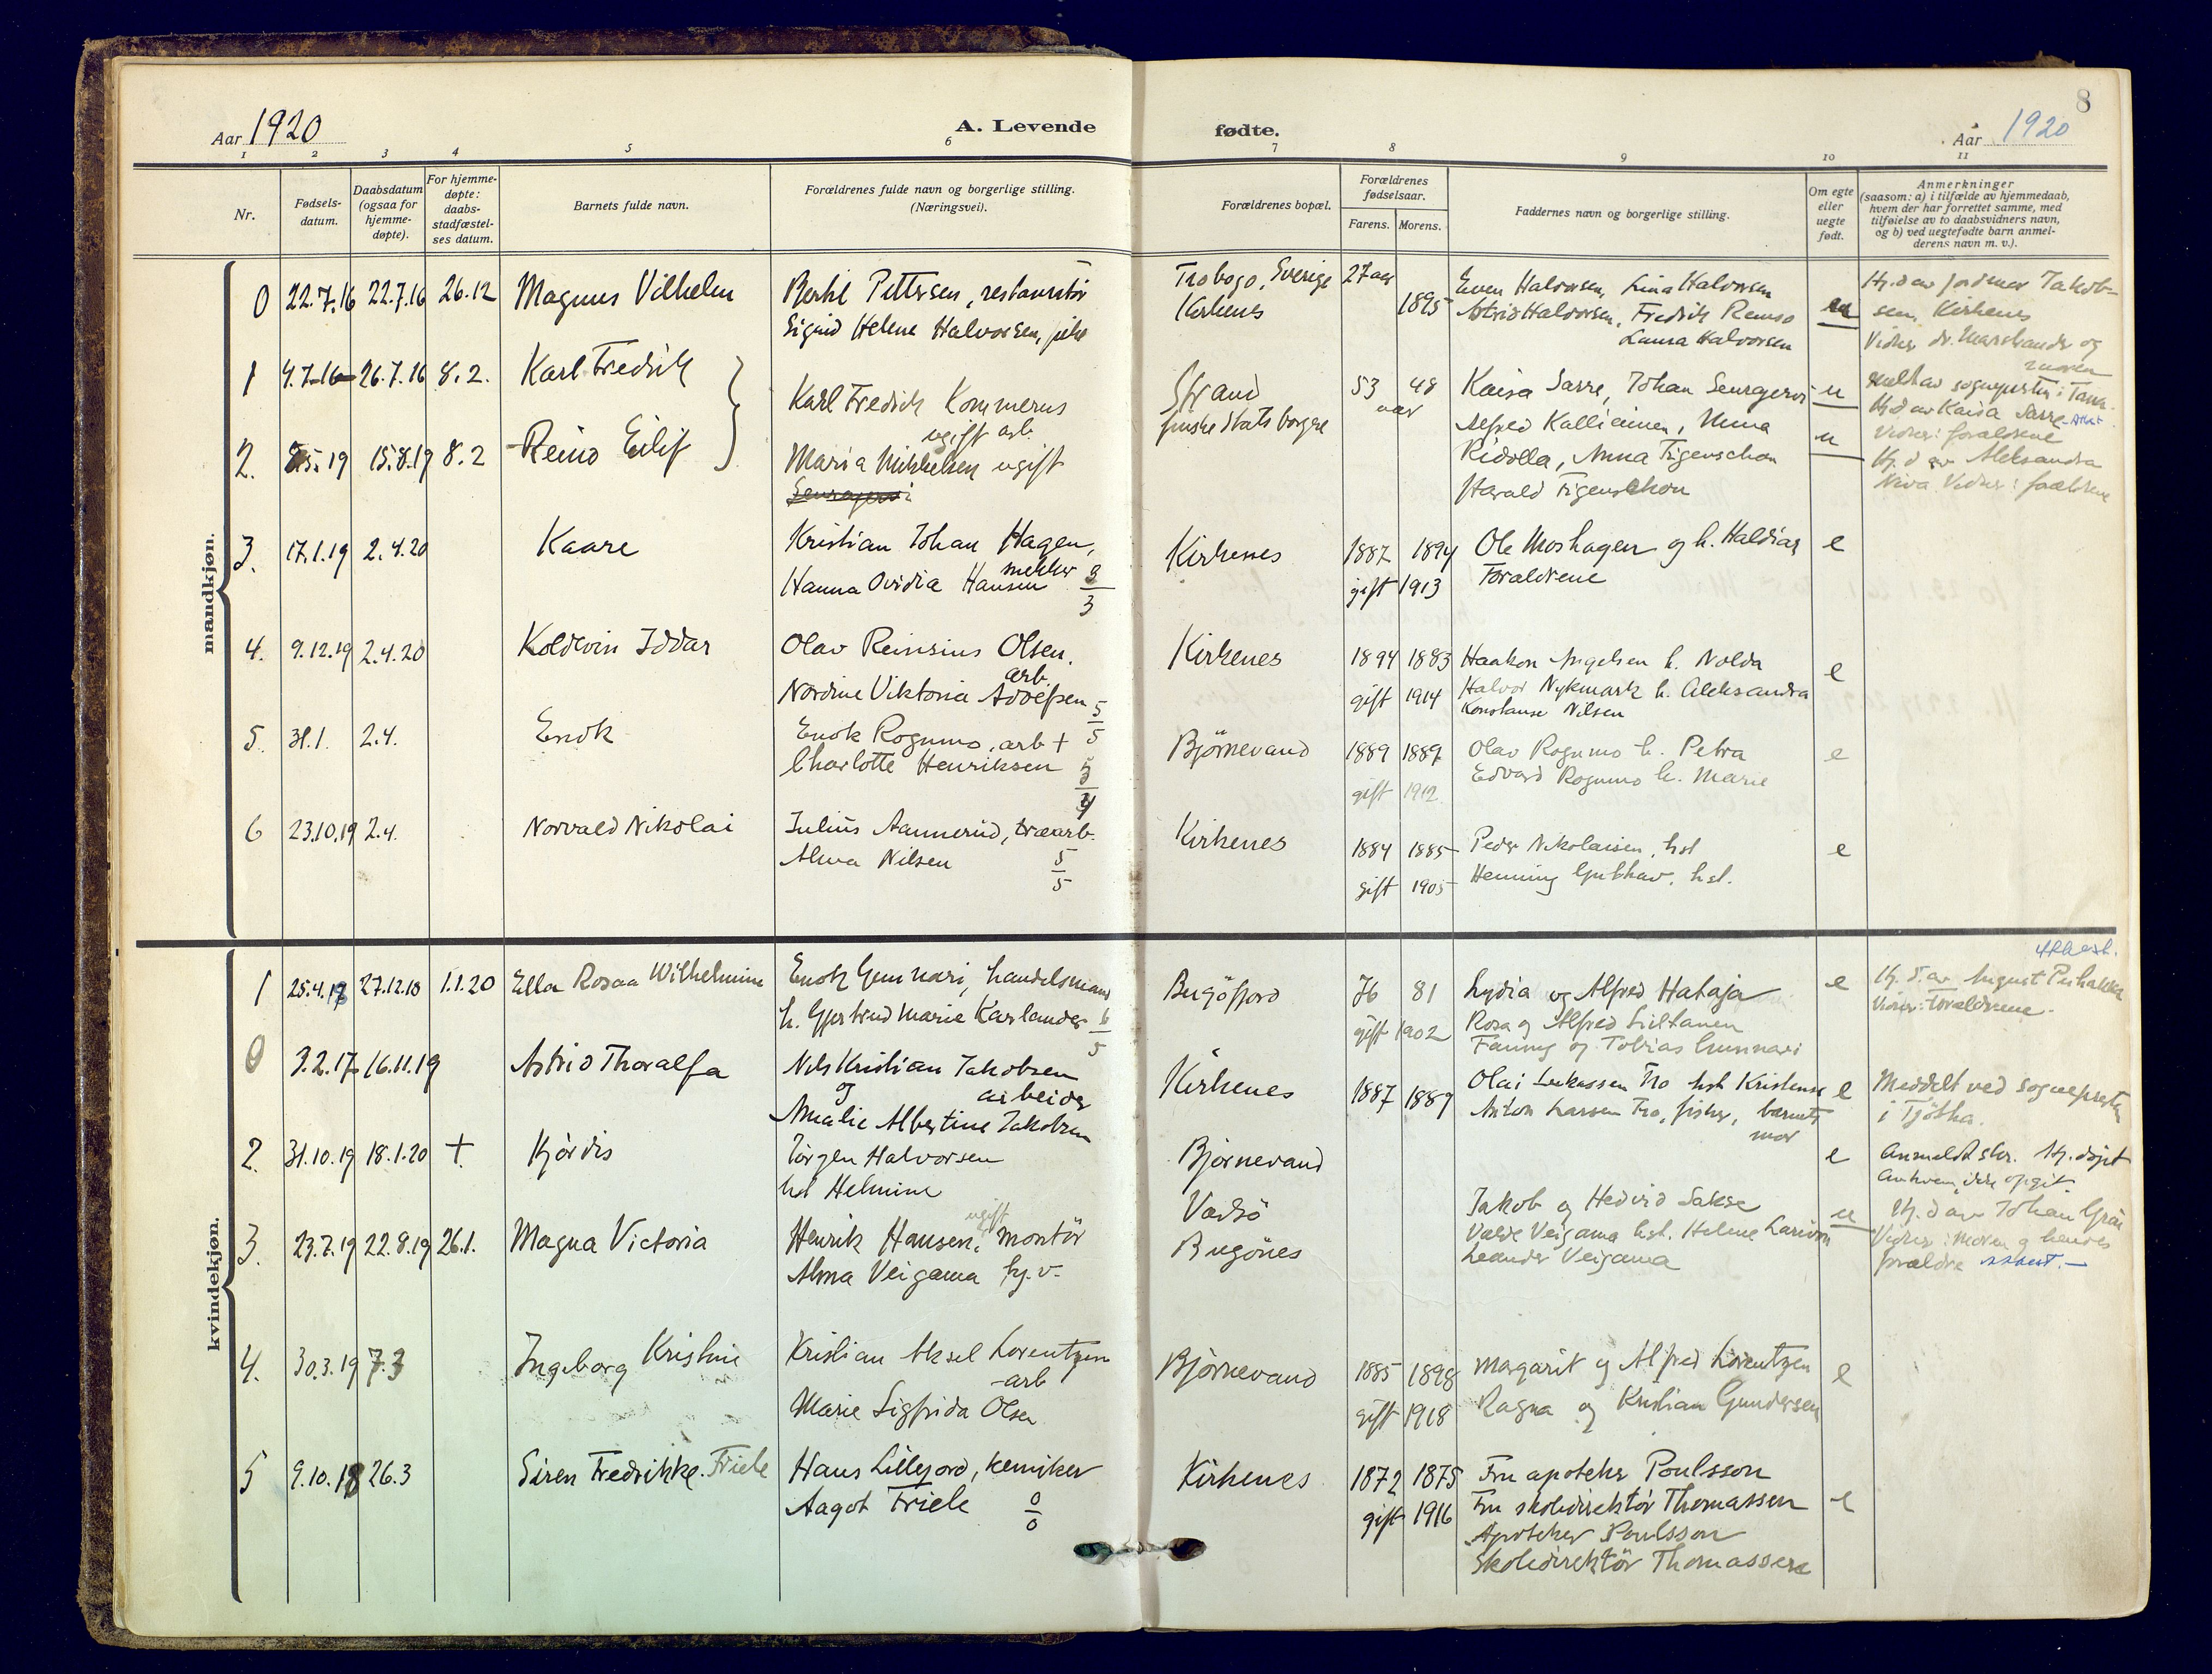 8
Aar 1920
A. Levende fødte.
Aar 1920
1 2 3 4 5 6 7 8 9 10 11
Nr.
Fødsels-
datum.
Daabsdatum
(ogsaa for
hjemme-
døpte).
For hjemme-
døpte:
daabs-
stadfæstel-
ses datum.
Barnets fulde navn.
Forældrenes fulde navn og borgerlige stilling.
(Næringsvei).
Forældrenes bopæl.
Forældrenes
fødselsaar.
Farens. Morens.
Faddernes navn og borgerlige stilling.
Om egte
eller
uegte
født.
Anmerkninger
(saasom: a) i tilfælde av hjemmedaab,
hvem der har forrettet samme, med
tilføielse av to daabsvidners navn,
og b) ved uegtefødte barn anmel-
derens navn m. v.).
mandkjøn.
0 22.7.16 22.7.16 26.12 Magnus Vilhelm
Bertil Pettersen, restauratör
Sigrid Helene Halvorsen, pike
Trobogo, Sverige
Kirkenes
27 aar
1895
Even Halvorsen, Lina Halvorsen
Astrid Halvorsen, Fredrik Remso
Laura Halvorsen
Hj.d av jordmor Jakob-
sen, Kirkenes
Vidner dr. Marstrander og
moren
1 4.7.16 26.7.16 8.2. Karl Fredrik
Karl Fredrik Kommerus
ugift arb.
2. 8.5.19 15.8.19 8.2 Reino Eilif
Maria Mikkelsen ugift
Strand
finske statsborgere
53 48
aar
Kaisa Sarre, Johan Seurageri
Alfred Kalliainen, Anna
Ridolla, Anna Figenschou
Harald Figenschou
u
u
Hj.d av Kaisa Sarre
Vidner: forældrene
Hj.d av Aleksandra
Niva Vidner: forældrene
3. 17.1.19 2.4.20 Kaare
Kristian Johan Hagen,
snekker
Hanna Ovidia Hansen
3
3
Kirkenes
1887 1894
gift 1913
Ole Moshagen og h. Haldias
Forældrene
e
4. 9.12.19 2.4.20 Koldevin Iddar
Olav Reinsius Olsen,
arb.
Nordine Viktoria Adolfsen
5
5
Kirkenes
1894 1883
gift 1914
Haakon Ingelsen h. Nolda
Halvor Nykmark h. Aleksandra
Konstanse Nilsen
e
5. 31.1. 2.4. Enok
Enok Rognmo, arb +
Charlotte Henriksen
5
4
Björnevand
1889 1887
gift 1912
Olav Rognmo h. Petra
Edvard Rognmo h. Marie
e
6 23.10.19 2.4. Norvald Nikolai
Julius Aannerud, træarb.
Alma Nilsen
5
5
Kirkenes
1884 1885
gift 1905
Peder Nikolaisen, hst
Henning Gulbhav, hst.
e
kvindekjøn.
1 25.4.18 27.12.18 1.1.20 Ella Rosaa Wilhelmine
Enok Gunnari, handelsmand
h. Gjertrud Marie Karlander
6
5
Bugöfjord
76 81
gift 1902
Lydia og Alfred Hataja
Rosa og Alfred Siiltanen
Fanny og Tobias Gunnari
e
Attest.
Hj.d. av August Puhakka
Vidner: forældrene.
0 3.2.17 16.11.19 Astrid Thoralfa
Nils Kristian Jakobsen
og arbeider
Amalie Albertine Jakobsen
Kirkenes
1887 1889
Olai Lukassen Tro hst Kristense
Anton Larsen Tro, fisker, barnets
mor
e
Meddelt ved sogneprestn
i Tjötta.
2. 31.10.19 18.1.20 + Hjördis
Jörgen Halvorsen
hst Helmine
Björnevand
e
Anmeldt skr. Hj. döpt
av hvem, ikke opgit.
3. 23.7.19 22.8.19 26.1. Magna Victoria
ugift
Henrik Hansen, montör
Alma Veigama hj.v.
Vadsö
Bugönes
Jakob og Hedvid Sakse
Valde Veigama hst. Helene Larivon
Leander Veigama
u
Hj. d av Johan Grän
Vidner: Moren og hendes
forældre attest. –
4. 30.3.19 7.3 Ingeborg Kristine
Kristian Aksel Lorentzen
arb
Marie Sigfrida Olsen
Björnevand
1885 1898
gift 1918
Margarit og Alfred Lorentzen
Ragna og Kristian Gundersen
e
5 9.10.18 26.3 Siren Fredrikke Friele
Hans Lillejord, kemiker
Aagot Friele
0
0
Kirkenes
1872 1875
gift 1916
Fru apoteker Poulsson
Fru skoledirektör Thomassen
Apoteker Poulsson
Skoledirektör Thomassen
e